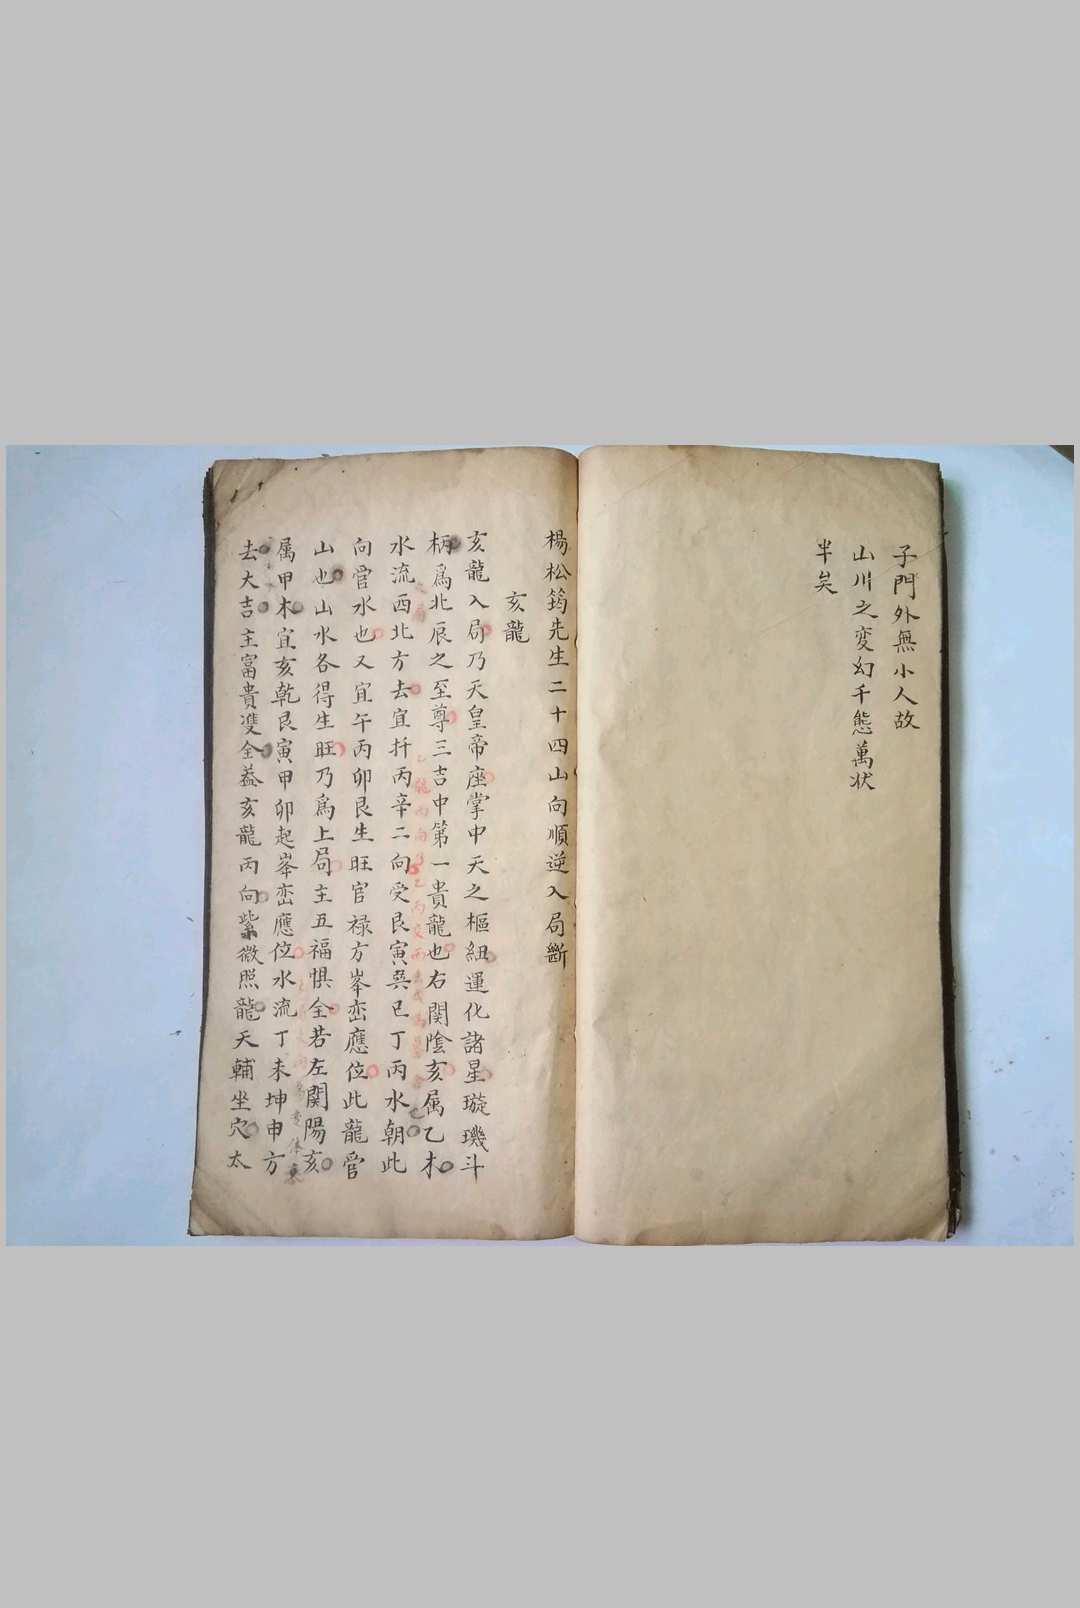 子門外無小人故
山川之変幻千態萬状
半矣
楊松筠先生二十四山向順逆入局斷
亥龍
亥龍入局乃天皇帝座掌中天之樞紐運化諸星璇璣斗
柄爲北辰之至尊三吉中第一貴龍也右関陰亥属乙木
水流西北方去宜扦丙辛二向受艮寅巽巳丁丙水朝此
向官水也又宜午丙卯艮生旺官禄方峯巒應位此龍管
山也山水各得生旺乃爲上局主五福惧全若左関陽亥
属甲木宜亥乾艮寅甲卯起峯巒應位水流丁未坤申方
去大吉主富貴雙全葢亥龍丙向紫微照龍天輔坐穴太